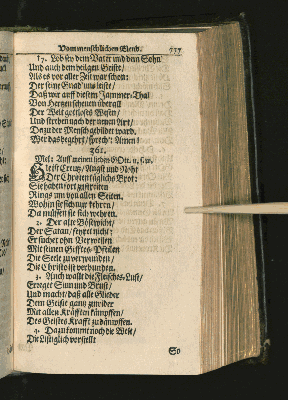 Vom menschlichen Elend. 737
17. Lob sey dem Vater und dem Sohn
Und auch dem heilgen Geiste/
Als es vor aller Zeit war schon:
Der seine Gnad uns leiste/
Daß wir auff diesem Jammer-Thal
Von Hertzen scheuen überall
Der Welt gottloses Wesen/
Und streben nach der neuen Art/
Dazu der Mensch gebildet ward.
Wer das begehrt/ spreche: Amen!
361.
Mel: Auff meinen lieben GOtt. u. s. w.
Hie ist Creutz/ Angst und Noht
Der Christen täglichs Brot:
Sie haben fort zustreiten
Rings um von allen Seiten.
Wohin sie sich nur kehren/
Da müssen sie sich wehren.
2. Der alte Bösewicht/
Der Satan/ feyret nicht:
Er suchet ohn Verweilen
Mit seinen Giftes-Pfeilen
Die Seele zu verwunden/
Die Christo ist verbunden.
3. Auch wallt die Fleisches-Lust/
Erreget Sinn und Brust/
Und macht/ daß alle Glieder
Dem Geiste gantz zuwider
Mit allen Kräfften kämpffen/
Des Geistes Krafft zu dämpffen.
4. Dazu komt noch die Welt/
Die Listiglich vorstellt
So